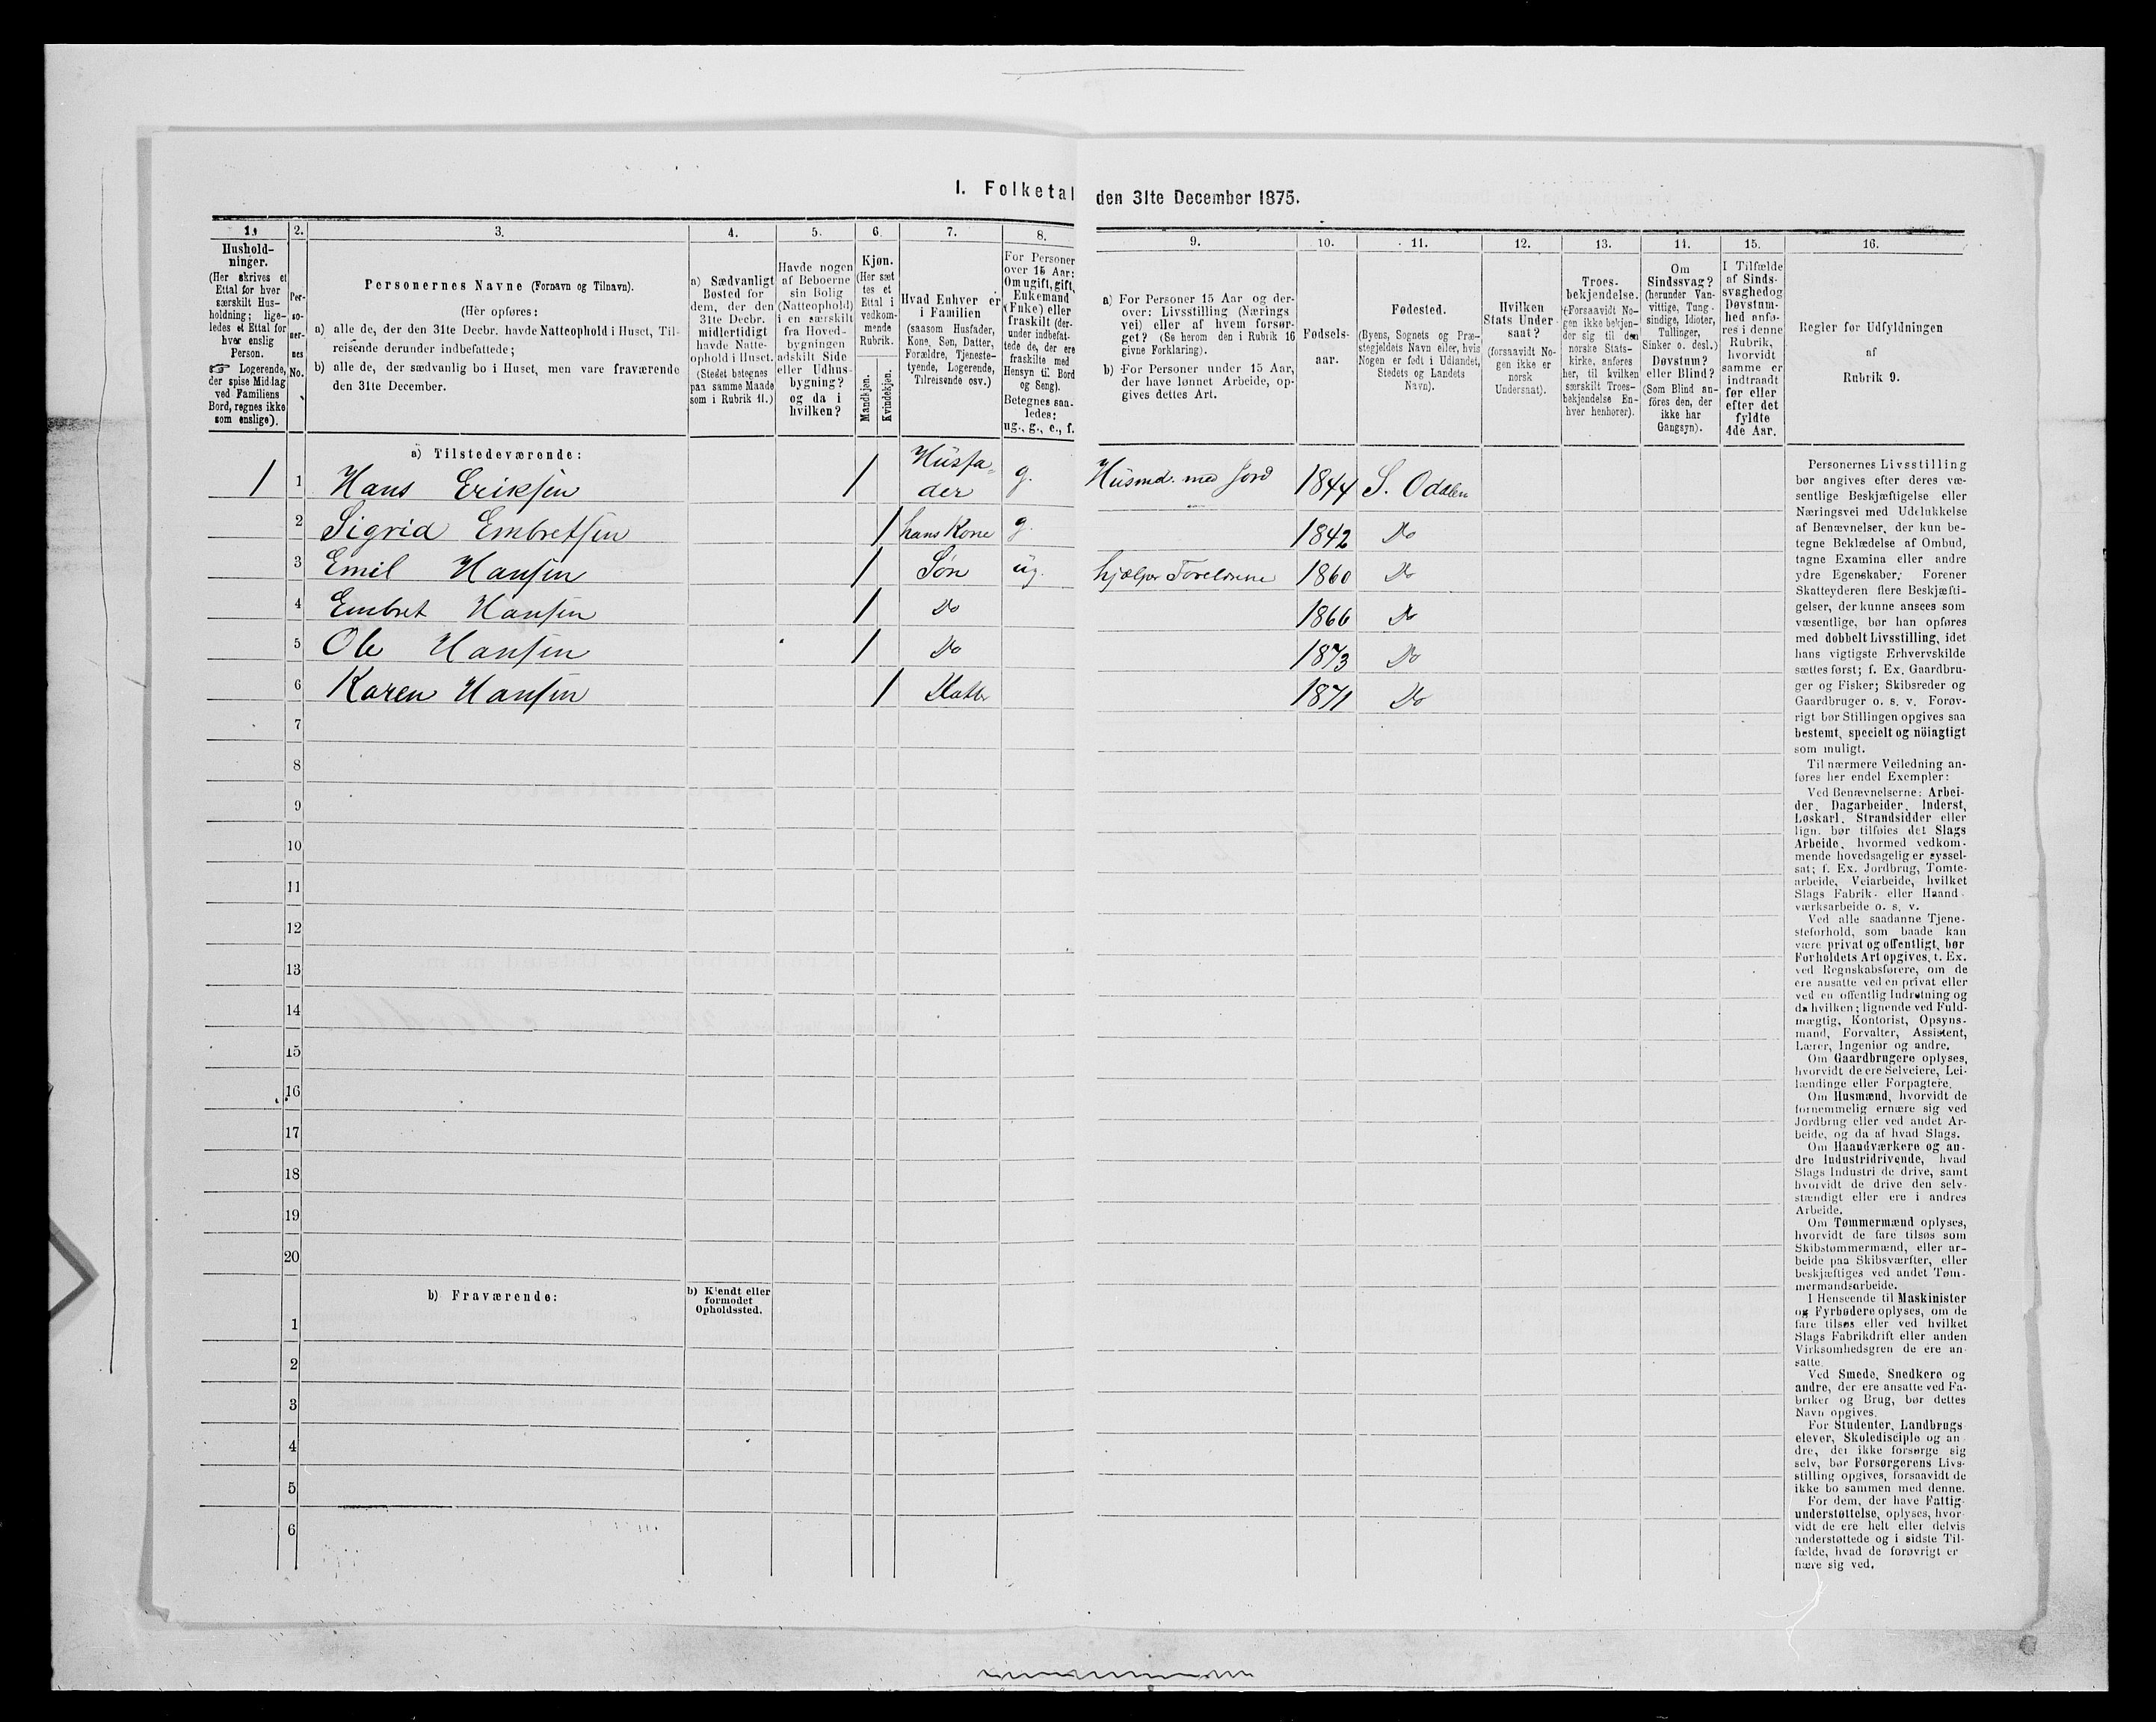 I. Folketal den 31te December 1875.
1.
Hushold-
ninger.
(Her skrives et
Ettal for hver
særskilt Hus-
holdning; lige-
ledes et Ettal for
hver enslig
Person.
☞ Logerende,
der spise Middag
ved Familiens
Bord, regnes ikke
som enslige).
2.
Per-
so-
ner-
nes
No.
3.
Personernes Navne (Fornavn og Tilnavn).
(Her opføres:
a) alle de, der den 31te Decbr. havde Natteophold i Huset, Til-
reisende derunder indbefattede;
b) alle de, der sædvanlig bo i Huset, men vare fraværende
den 31te December.
4.
a) Sædvanligt
Bosted for
dem, der den
31te Decbr.
midlertidigt
havde Natte-
ophold i Huset.
(Stedet betegnes
paa samme Maade
som i Rubrik 11.)
5.
Havde nogen
af Beboerne
sin Bolig
(Natteophold)
i en særskilt
fra Hoved-
bygningen
adskilt Side
eller Udhus-
bygning?
og da i
hvilken?
6.
Kjøn.
(Her sæt
tes et
Ettal i
vedkom-
mende
Rubrik.
Mandkjøn.
Kvindekjøn.
7.
Hvad Enhver er
i Familien
(saasom Husfader,
Kone, Søn, Datter,
Forældre, Tjeneste-
tyende, Logerende,
Tilreisende osv.)
8.
For Personer
over 15 Aar:
Om ugift, gift,
Enkemand
(Enke) eller
fraskilt (der-
under indbefat-
tede de, der ere
fraskilte med
Hensyn til Bord
og Seng).
Betegnes saa-
ledes:
ug., g., e., f.
9.
a) For Personer 15 Aar og der-
over: Livsstilling (Nærings
vei) eller af hvem forsør-
get? (Se herom den i Rubrik 16
givne Forklaring).
b) For Personer under 15 Aar,
der have lønnet Arbeide, op-
gives dettes Art.
10.
Fødsels-
aar.
11.
Fødested.
(Byens, Sognets og Præ-
stegjeldets Navn eller, hvis
Nogen er født i Udlandet,
Stedets og Landets
Navn).
12.
Hvilken
Stats Under-
saat?
(forsaavidt No-
gen ikke er
norsk
Undersaat).
13.
Troes-
bekjendelse.
(Forsaavidt No-
gen ikke bekjen-
der sig til den
norske Stats-
kirke, anføres
her, til hvilken
særskilt Troes-
bekjendelse En-
hver henhører).
14.
Om
Sindssvag?
(herunder Van-
vittige, Tung-
sindige, Idioter,
Tullinger,
Sinker o. desl.)
Døvstum?
eller Blind?
(Som Blind an-
føres den, der
ikke har
Gangsyn).
15.
I Tilfælde
af Sinds-
svaghed og
Døvstum-
hed anfø-
res i denne
Rubrik,
hvorvidt
samme er
indtraadt
før eller
efter det
fyldte
4de Aar.
16.
Regler for Udfyldningen
af
Rubrik 9.
a) Tilstedeværende:
1 1 Hans Eriksen 1 Husfa-
der g. Husmd. med Jord 1844 S. Odalen
2 Sigrid Embretsen 1 hans Kone g. 1842 Do
3 Emil Hansen 1 Søn ug. hjælper Foreldrene 1860 Do
4 Embret Hansen 1 Do 1866 Do
5 Ole Hansen 1 Do 1873 Do
6 Karen Hansen 1 Datter 1871 Do
7
8
9
10
11
12
13
14
15
16
17
18
19
20
b) Fraværende:
b) Kjendt eller
formodet
Opholdssted.
1
2
3
4
5
6
Personernes Livsstilling
bør angives efter deres væ-
sentlige Beskjæftigelse eller
Næringsvei med Udelukkelse
af Benævnelser, der kun be-
tegne Beklædelse af Ombud,
tagne Examina eller andre
ydre Egenskaber. Forener
Skatteyderen flere Beskjæfti-
gelser, der kunne ansees som
væsentlige, bør han opføres
med dobbelt Livsstilling, idet
hans vigtigste Erhvervskilde
sættes først; f. Ex. Gaardbru-
ger og Fisker; Skibsreder og
Gaardbruger o. s. v. Forøv-
rigt bør Stillingen opgives saa
bestemt, specielt og nöiagtigt
som muligt.
Til nærmere Veiledning an-
føres her endel Exempler:
Ved Benævnelserne: Arbei-
der, Dagarbeider, Inderst,
Løskarl, Strandsidder eller
lign. bør tilføies det Slags
Arbeide, hvormed vedkom-
mende hovedsagelig er syssel-
sat; f. Ex. Jordbrug, Tomte-
arbeide, Veiarbeide, hvilket
Slags Fabrik- eller Haand-
værksarbeide o. s. v.
Ved alle saadanne Tjene-
steforhold, som baade kan
være privat og offentligt, bør
Forholdets Art opgives, t. Ex.
ved Regnskabsførere, om de
ere ansatte ved en privat eller
ved en offentlig Indretning og
da hvilken; lignende ved Fuld-
mægtig, Kontorist, Opsyns-
mand, Forvalter, Assistent,
Lærer, Ingeniør og andre.
Om Gaardbrugere oplyses,
hvorvidt de ere Selveiere, Lei-
lændinge eller Forpagtere.
Om Husmænd, hvorvidt de
fornemmelig ernære sig ved
Jordbrug eller ved andet Ar-
beide, og da af hvad Slags.
Om Haandværkere og an-
dre Industridrivende, hvad
Slags Industri de drive, samt
hvorvidt de drive den selv-
stændigt eller ere i andres
Arbeide.
Om Tømmermænd oplyses,
hvorvidt de fare tilsøs som
Skibstømmermænd, eller ar-
beide paa Skibsværfter, eller
beskjæftiges ved andet Tøm-
mermandsarbeide.
I Henseende til Maskinister
og Fyrbødere oplyses, om de
fare tilsøs eller ved hvilket
Slags Fabrikdrift eller anden
Virksomhedsgren de ere an-
satte.
Ved Smede, Snedkere og
andre, der ere ansatte ved Fa-
briker og Brug, bør dettes
Navn opgives.
For Studenter, Landbrugs-
elever, Skoledisciple og an-
dre, der ikke forsørge sig
selv, bør Forsørgerens Livs-
stilling opgives, forsaavidt de
ikke bo sammen med denne.
For dem, der have Fattig-
understøttelse, oplyses, hvor-
vidt de ere helt eller delvis
understøttede og i sidste Til-
fælde, hvad de forøvrigt er
nære sig ved.